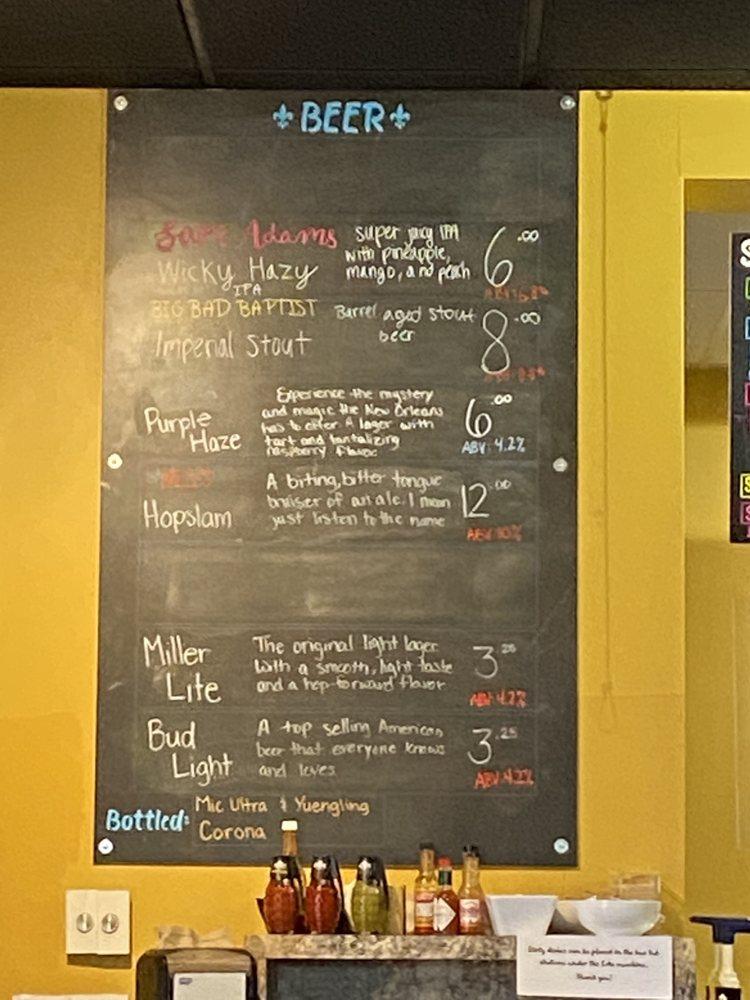 BEER
Sam Adams
Wicky Hazy
IPA
super juicy IPA
with pineapple,
mango, and peach
6.00
BIG BAD BAPTIST
Imperial Stout
Barrel aged stout
beer
8.00
Purple
Haze
Experience the mystery
and magic the New Orleans
has to offer. A lager with
tart and tantalizing
raspberry flavor
6.00
ABV: 4.2%
Hopslam
A biting, bitter tongue
bruiser of an ale. I mean
just listen to the name
12.00
ABV: 10%
Miller
Lite
The original light lager
With a smooth, light taste
and a hop-forward flavor
3.25
ABV: 4.2%
Bud
Light
A top selling American
beer that everyone knows
and loves
3.25
ABV: 4.2%
Bottled:
Mic Ultra & Yuengling
Corona
Dirty dishes can be placed in the
Thank you!